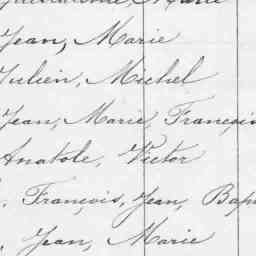 Jean, Marie
Julien, Michel
Jean, Marie, François
Anatole, Victor
, François, Jean, Bap
, Jean, Marie